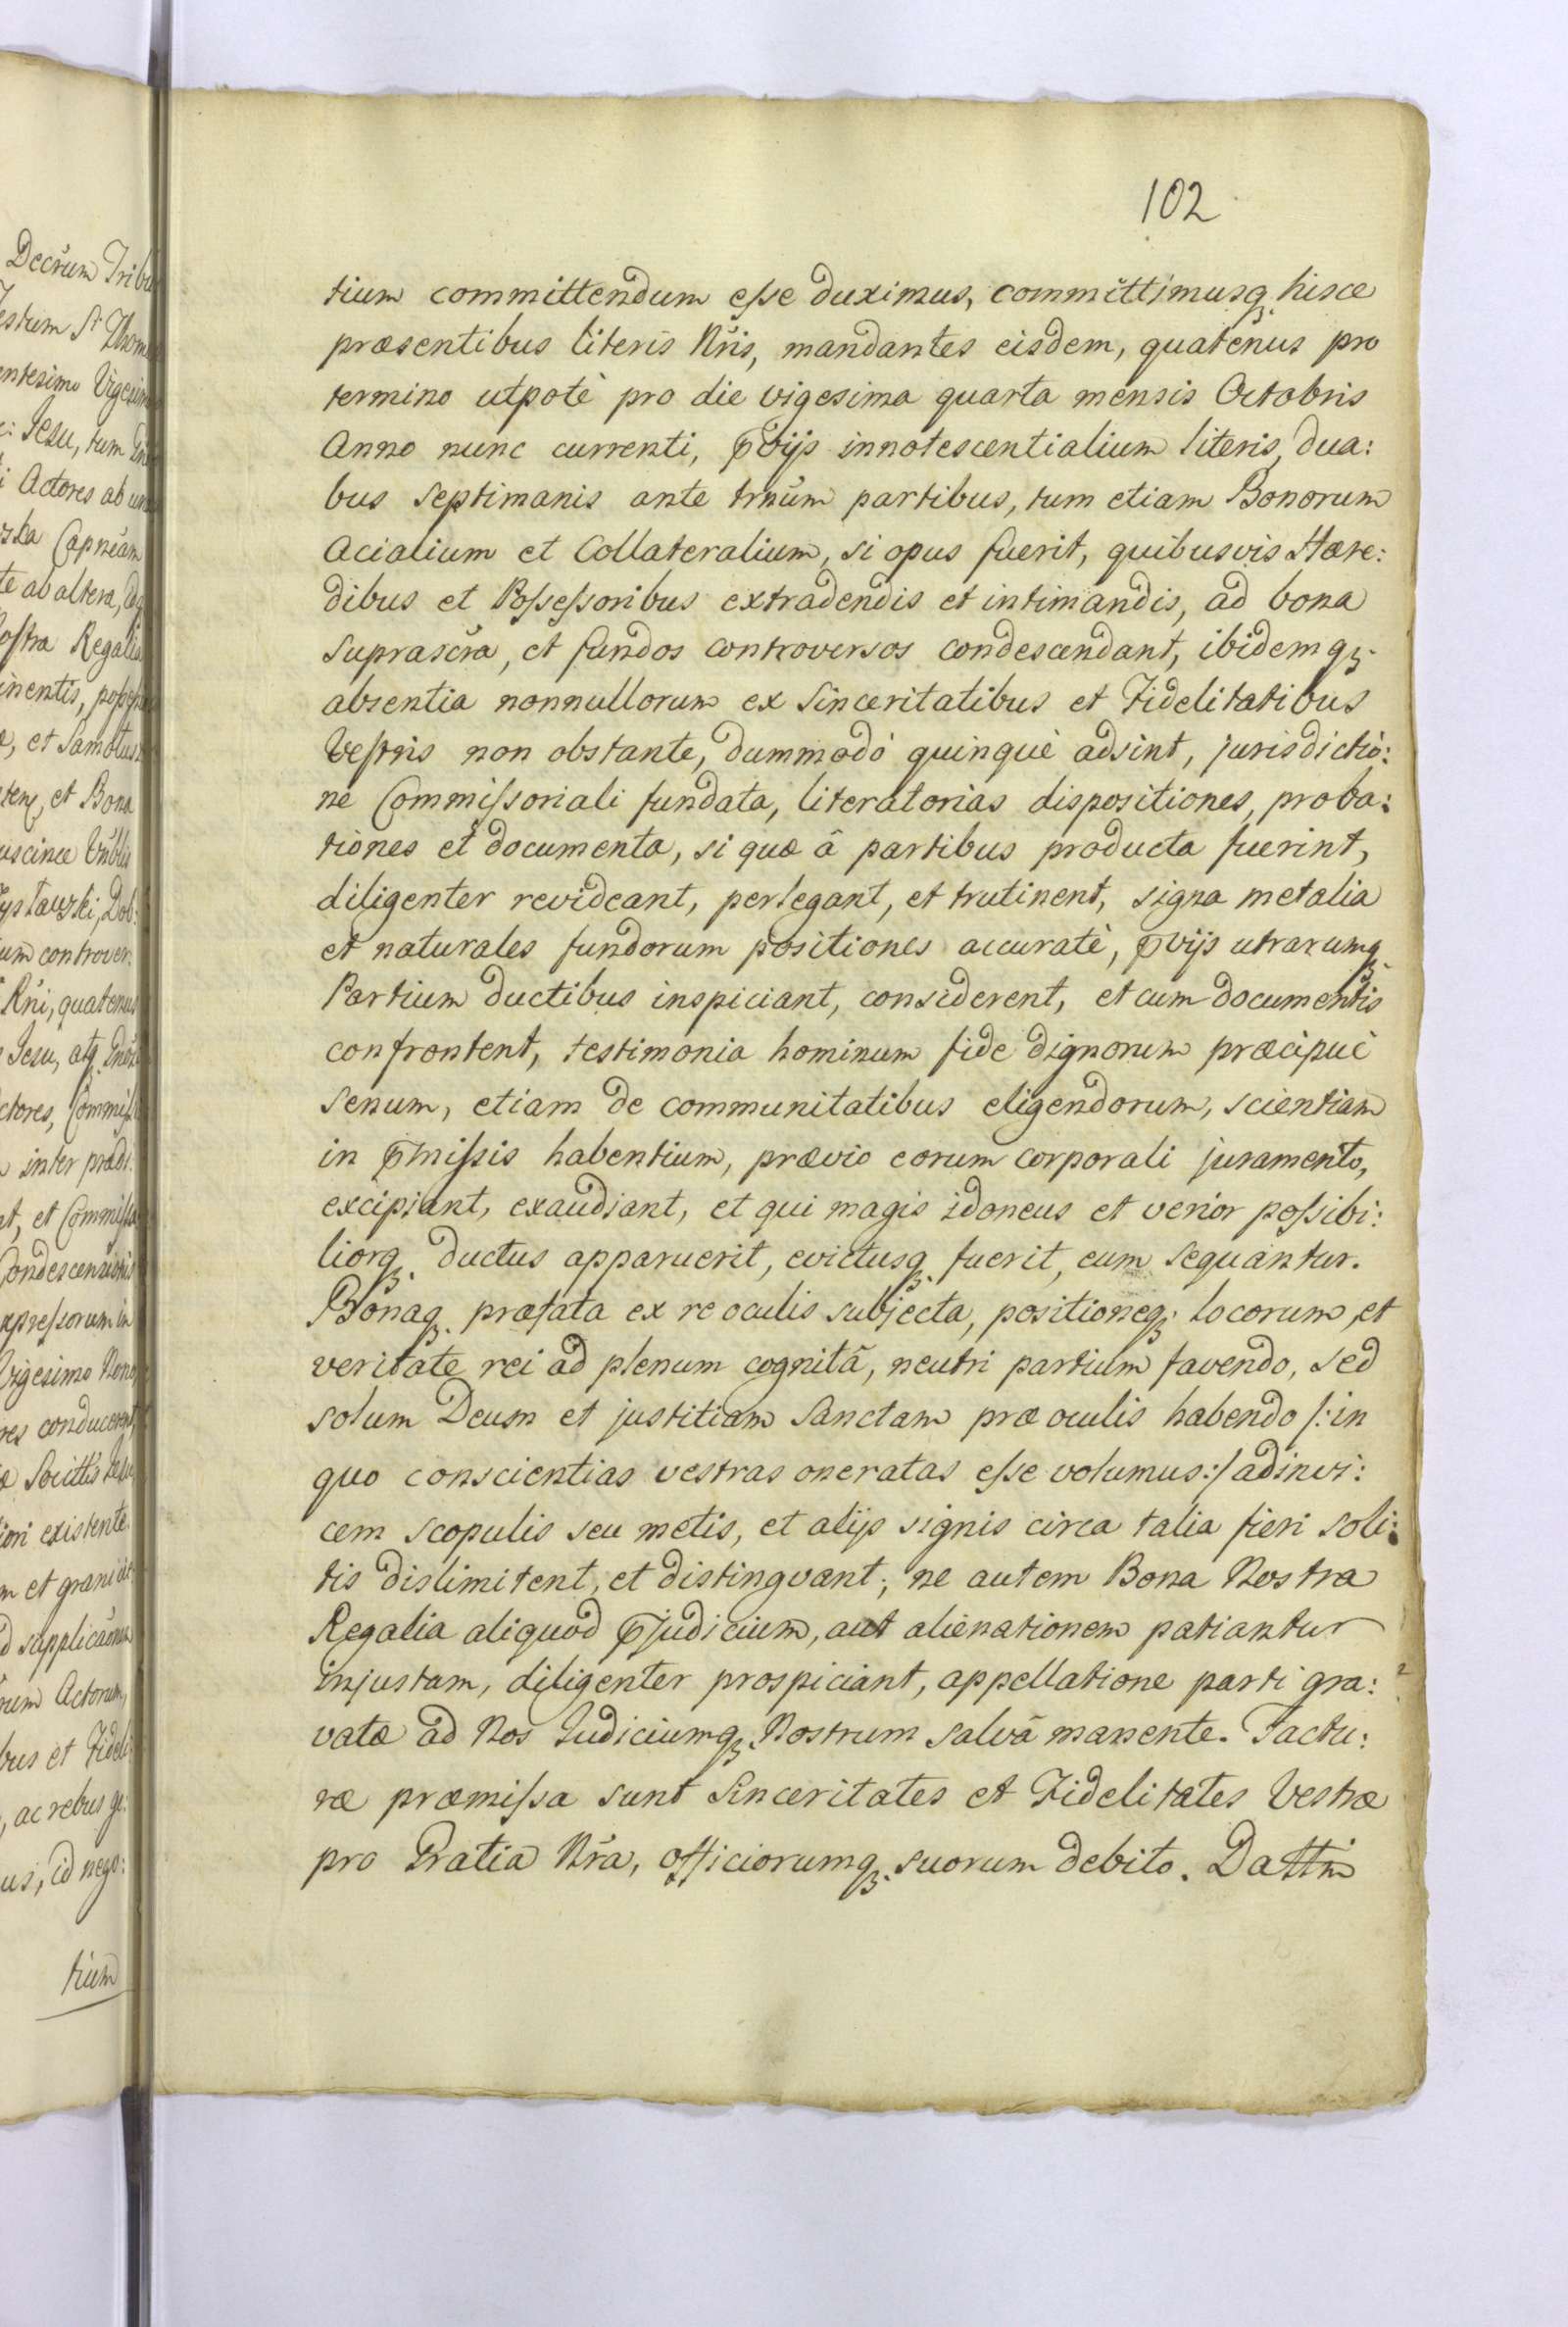 102
tium committendum eſse duximus, committimusq₃ hisce
præsentibus literis Nris, mandantes eisdem, quatenus pro
termino utpotè pro die vigesima quarta mensis Octobris
Anno nunc currenti, p̄vijs innotescentialium literis, dua:
bus septimanis ante trnum partibus, tum etiam Bonorum
Acialium et Collateralium, si opus fuerit, quibusvis Hære:
dibus et Poſseſsoribus extradendis et intimandis, ad bona
suprascra, et fundos controversos condescendant, ibidemq₃
absentia nonnullorum ex Sinceritatibus et Fidelitatibus
Veſtris non obstante, dummodò quinquè adsint, jurisdictio:
ne Commiſsoriali fundata, literatorias dispositiones, proba:
tiones et documenta, si quæ â partibus producta fuerint,
diligenter revideant, perlegant, et trutinent, signa metalia
et naturales fundorum positiones accuratè, p̄vijs utrarumq₃
Partium ductibus inspiciant, considerent, et cum documentis
confrontent, testimonia hominum fide dignorum præcipuè
senum, etiam de communitatibus eligendorum, scientiam
in p̄miſsis habentium, prævio eorum corporali juramento,
excipiant, exaudiant, et qui magis idoneus et verior poſsibi:
liorq₃ ductus apparuerit, evictusq₃ fuerit, eum sequantur.
Bonaq₃ præfata ex re oculis subjecta, positioneq₃ locorum et
veritate rei ad plenum cognitâ, neutri partium favendo, sed
solum Deum et justitiam Sanctam præ oculis habendo /: in
quo conscientias vestras oneratas eſse volumus :/ adinvi:
cem scopulis seu metis, et alijs signis circa talia fieri soli:
tis dislimitent, et distingvant; ne autem Bona Nostra
Regalia aliquod p̄judicium, aut alienationem patiantur
injustam, diligenter prospiciant, appellatione parti gra:
vatæ ad Nos Judiciumq₃ Nostrum salvâ manente. Factu:
ræ præmiſsa sunt Sinceritates et Fidelitates Vestræ
pro Gratia Nrã, officiorumq₃ suorum debito. Dattm
tium